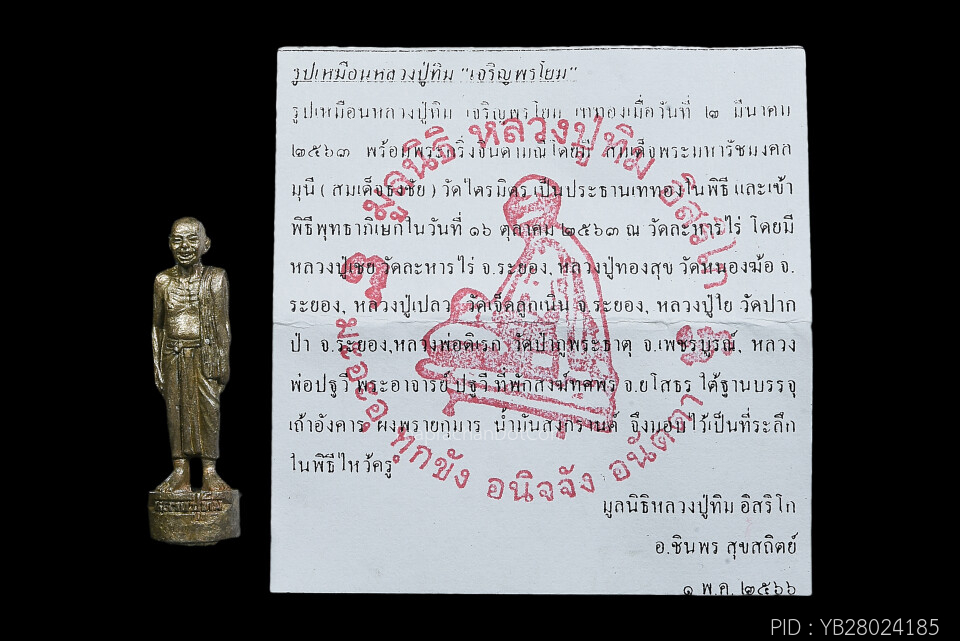 รูปเหมือนหลวงปู่ทิม "เจริญพรโยม"
รูปเหมือนหลวงปู่ทิม เจริญพรโยม เททองเมื่อวันที่ ๒ มีนาคม
๒๕๖๓ พร้อมพระกริ่งจินดามณีโดยมี สมเด็จพระมหารัชมงคล
มุนี ( สมเด็จธงชัย ) วัดไตรมิตร เป็นประธานเททองในพิธี และเข้า
พิธีพุทธาภิเษกในวันที่ ๑๖ ตุลาคม ๒๕๖๓ ณ วัดละหารไร่ โดยมี
หลวงปู่เชย วัดละหารไร่ จ.ระยอง, หลวงปู่ทองสุข วัดหนองฆ้อ จ.
ระยอง, หลวงปู่เปลว วัดเจ็ดลูกเนิน จ.ระยอง, หลวงปู่ใย วัดปาก
ป่า จ.ระยอง,หลวงพ่อดิเรก วัดป่าภูพระธาตุ จ.เพชรบูรณ์, หลวง
พ่อปฐวี พระอาจารย์ ปฐวี ที่พักสงฆ์ จ.ยโสธร ใต้ฐานบรรจุ
เถ้าอังคาร ผงพรายกุมาร น้ำมันสงกรานต์ จึงมอบไว้เป็นที่ระลึก
ในพิธีไหว้ครู
มูลนิธิหลวงปู่ทิม อิสริโก
อ.ชินพร สุขสถิตย์
๑ พ.ค. ๒๕๖๖
มูลนิธิ หลวงปู่ทิม อิสริโก
มะอะอุ ทุกขัง อนิจจัง อนัตตา
PID : YB28024185